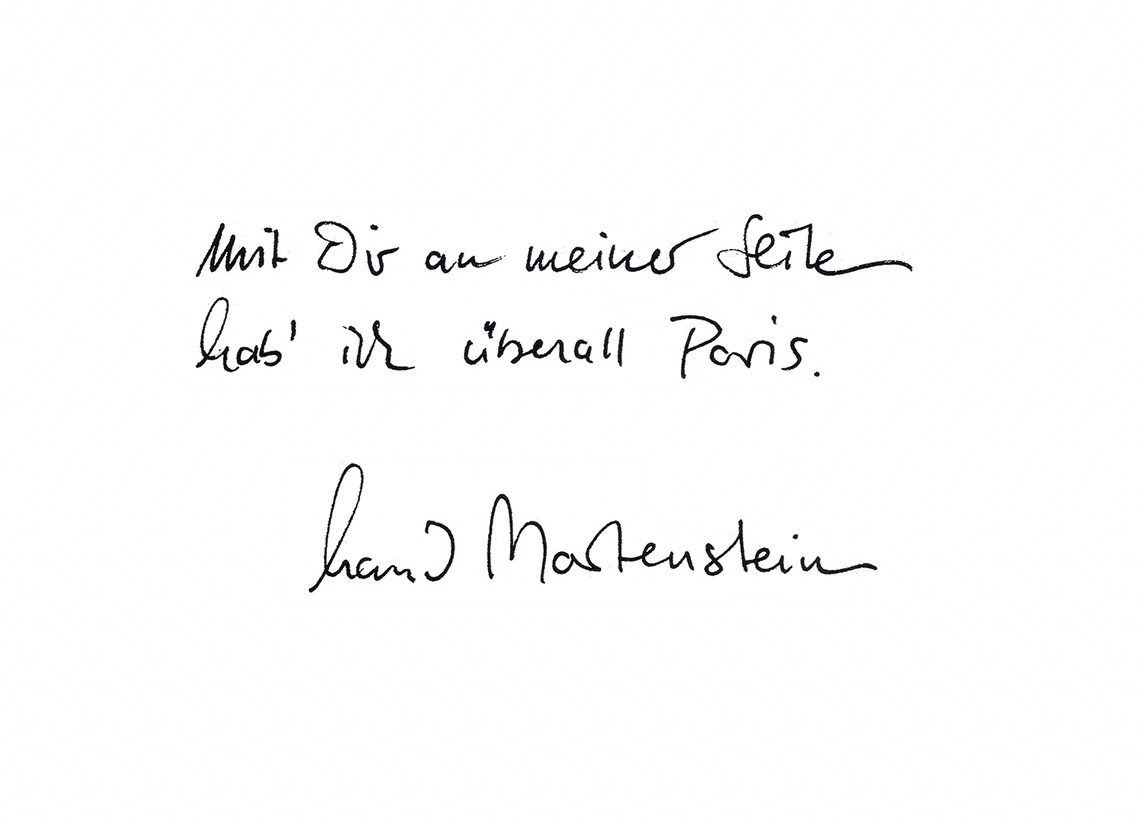 Mit Dir an meiner Seite
hab' ich überall Paris.
Harald Martenstein